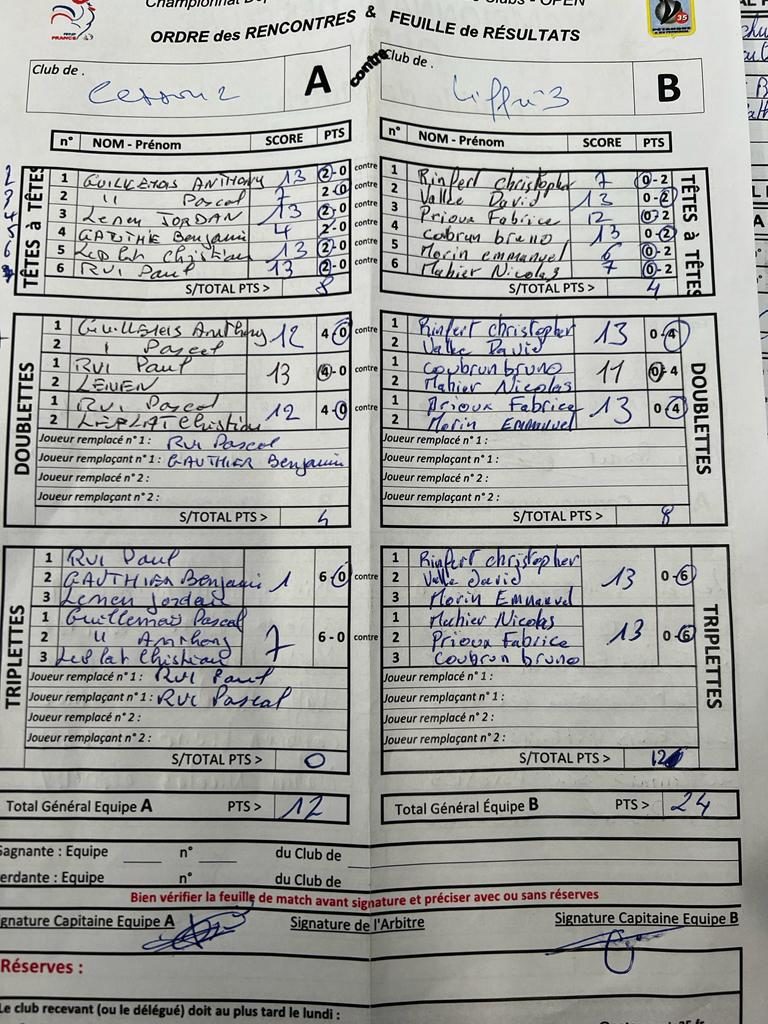 ORDRE des RENCONTRES & FEUILLE de RÉSULTATS
Club de . Cesson 2 A contre Club de . Liffré 3 B
n° NOM - Prénom SCORE PTS n° NOM - Prénom SCORE PTS
TÊTES à TÊTES
1 GUILLEMOIS ANTHONY 13 2-0 contre 1 Rinfert christopher 7 0-2
2 " Pascal 7 2-0 2 Vallée David 13 0-2
3 Lenen JORDAN 13 2-0 3 Prioux Fabrice 12 0-2
4 GAUTHIE Benjamin 4 2-0 4 coubrun bruno 13 0-2
5 Leplat Christian 13 2-0 5 Morin emmanuel 6 0-2
6 RUI Paul 13 2-0 contre 6 Mahier Nicolas 7 0-2
S/TOTAL PTS > 8 S/TOTAL PTS > 4
TÊTES à TÊTES
DOUBLETTES
1 Guillemois Anthony 12 4-0 contre 1 Rinfert christopher 13 0-4
2 " Pascal 2 Vallée David
1 RUI Paul 13 4-0 contre 1 Coubrun bruno 11 0-4
2 LENEN 2 Mahier Nicolas
1 RUI Pascal 12 4-0 contre 1 Prioux Fabrice 13 0-4
2 LEPLAT Christian 2 Morin Emmanuel
Joueur remplacé n° 1 : RUI Pascal Joueur remplacé n° 1 :
Joueur remplaçant n° 1 : GAUTHIER Benjamin Joueur remplaçant n° 1 :
Joueur remplacé n° 2 : Joueur remplacé n° 2 :
Joueur remplaçant n° 2 : Joueur remplaçant n° 2 :
S/TOTAL PTS > 4 S/TOTAL PTS > 8
DOUBLETTES
TRIPLETTES
1 RUI Paul 1 Rinfert christopher
2 GAUTHIER Benjamin 1 6-0 contre 2 Vallée David 13 0-6
3 Lenen Jordan 3 Morin Emmanuel
1 Guillemois Pascal 1 Mahier Nicolas
2 " Anthony 7 6-0 contre 2 Prioux Fabrice 13 0-6
3 Leplat Christian 3 Coubrun bruno
Joueur remplacé n° 1 : RUI Paul Joueur remplacé n° 1 :
Joueur remplaçant n° 1 : RUI Pascal Joueur remplaçant n° 1 :
Joueur remplacé n° 2 : Joueur remplacé n° 2 :
Joueur remplaçant n° 2 : Joueur remplaçant n° 2 :
S/TOTAL PTS > 0 S/TOTAL PTS > 12
TRIPLETTES
Total Général Equipe A PTS > 12 Total Général Équipe B PTS > 24
agnante : Equipe n° du Club de
erdante : Equipe n° du Club de
Bien vérifier la feuille de match avant signature et préciser avec ou sans réserves
gnature Capitaine Equipe A Signature de l'Arbitre Signature Capitaine Equipe B
Réserves :
Le club recevant (ou le délégué) doit au plus tard le lundi :